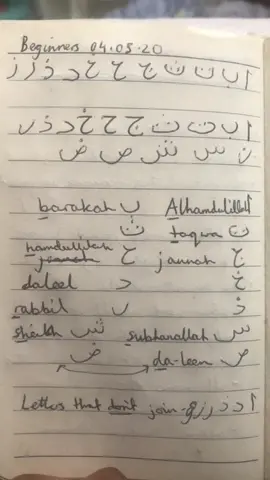 Beginners 04.05.20
ا ب ت ث ج ح خ د ذ ر ز
ا ب ت ث ج ح خ د ذ ر
ز س ش ص ض
barakah ب Alhamdulillah ا
ث taqwa ت
hamdullilah ح jannah ج
daleel د خ
rabbil ر ذ
sheikh ش subhanallah س
ض da-leen ص
Letters that don't join - و ز ر ذ د ا